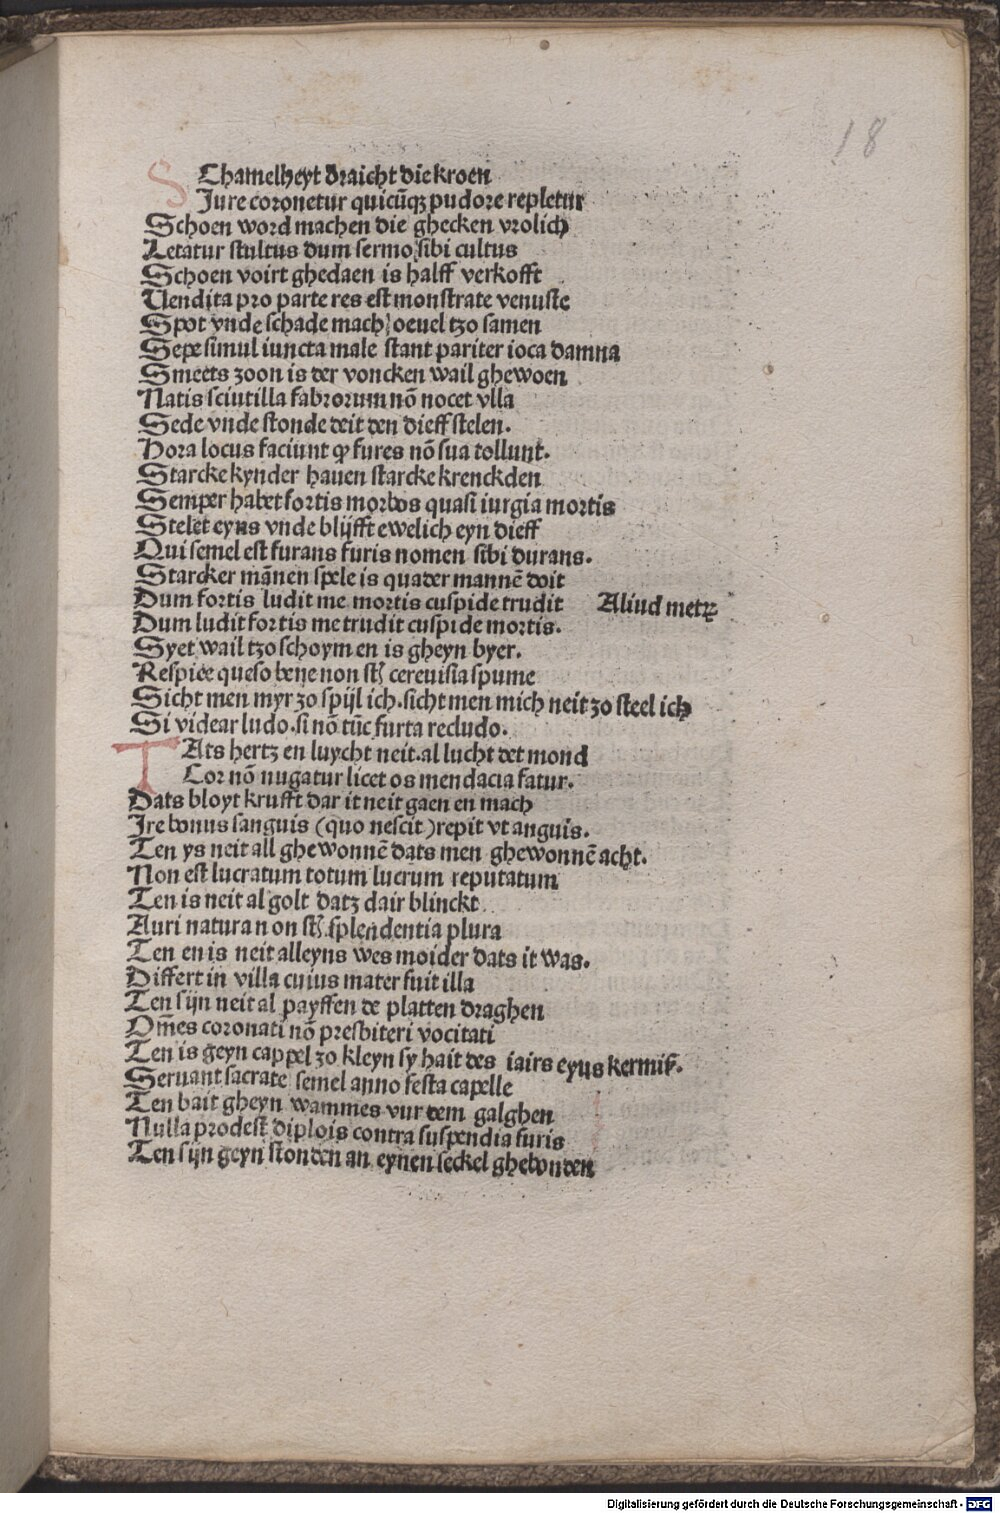 18
SChamelheyt draicht die kroen
Jure coronetur quicūqꝫ pudore repletur
Schoen word machen die ghecken vrolich
Letatur stultus dum sermo sibi cultus
Schoen voirt ghedaen is halff verkofft
Uendita pro parte res est monstrate venuste
Spot vnde schade mach oeuel tzo samen
Sepe simul iuncta male stant pariter ioca damna
Smeets zoon is der voncken wail ghewoen
Natis sciutilla fabrorum nō nocet vlla
Stede vnde stonde deit den dieff stelen.
Hora locus faciunt ꝙ fures nō sua tollunt.
Starcke kynder hauen starcke krenckden
Semper habet fortis morbos quasi iurgia mortis
Stelet eyns vnde blijfft ewelich eyn dieff
Qui semel est furans furis nomen sibi durans.
Starcker mānen spele is quader mannē doit
Dum fortis ludit me mortis cuspide trudit Aliud metꝝ
Dum ludit fortis me trudit cuspide mortis.
Syet wail tzo schoym en is gheyn byer.
Respice queso bene non sꝉ cereuisia spume
Sicht men myr zo spijl ich. sicht men mich neit zo steel ich
Si videar ludo. si nō tūc furta recludo.
TAts hertz en luycht neit. al lucht det mond
Cor nō nugatur licet os mendacia fatur.
Dats bloyt krufft dar it neit gaen en mach
Ire bonus sanguis (quo nescit) repit vt anguis.
Ten ys neit all ghewonnē dats men ghewonnē acht.
Non est lucratum totum lucrum reputatum
Ten is neit al golt datz dair blinckt
Auri natura non sꝉ splendentia plura
Ten en is neit alleyns wes moider dats it was.
Differt in villa cuius mater fuit illa
Ten sijn neit al payffen de platten draghen
Om̄es coronati nō presbiteri vocitati
Ten is geyn cappel zo kleyn sy hait des iairs eyns kermiß.
Seruant sacrate semel anno festa capelle
Ten bait gheyn wammes vur dem galghen
Nulla prodest diplois contra suspendia furis
Ten sijn geyn stonden an eynen seckel ghebonden
Digitalisierung gefördert durch die Deutsche Forschungsgemeinschaft - DFG